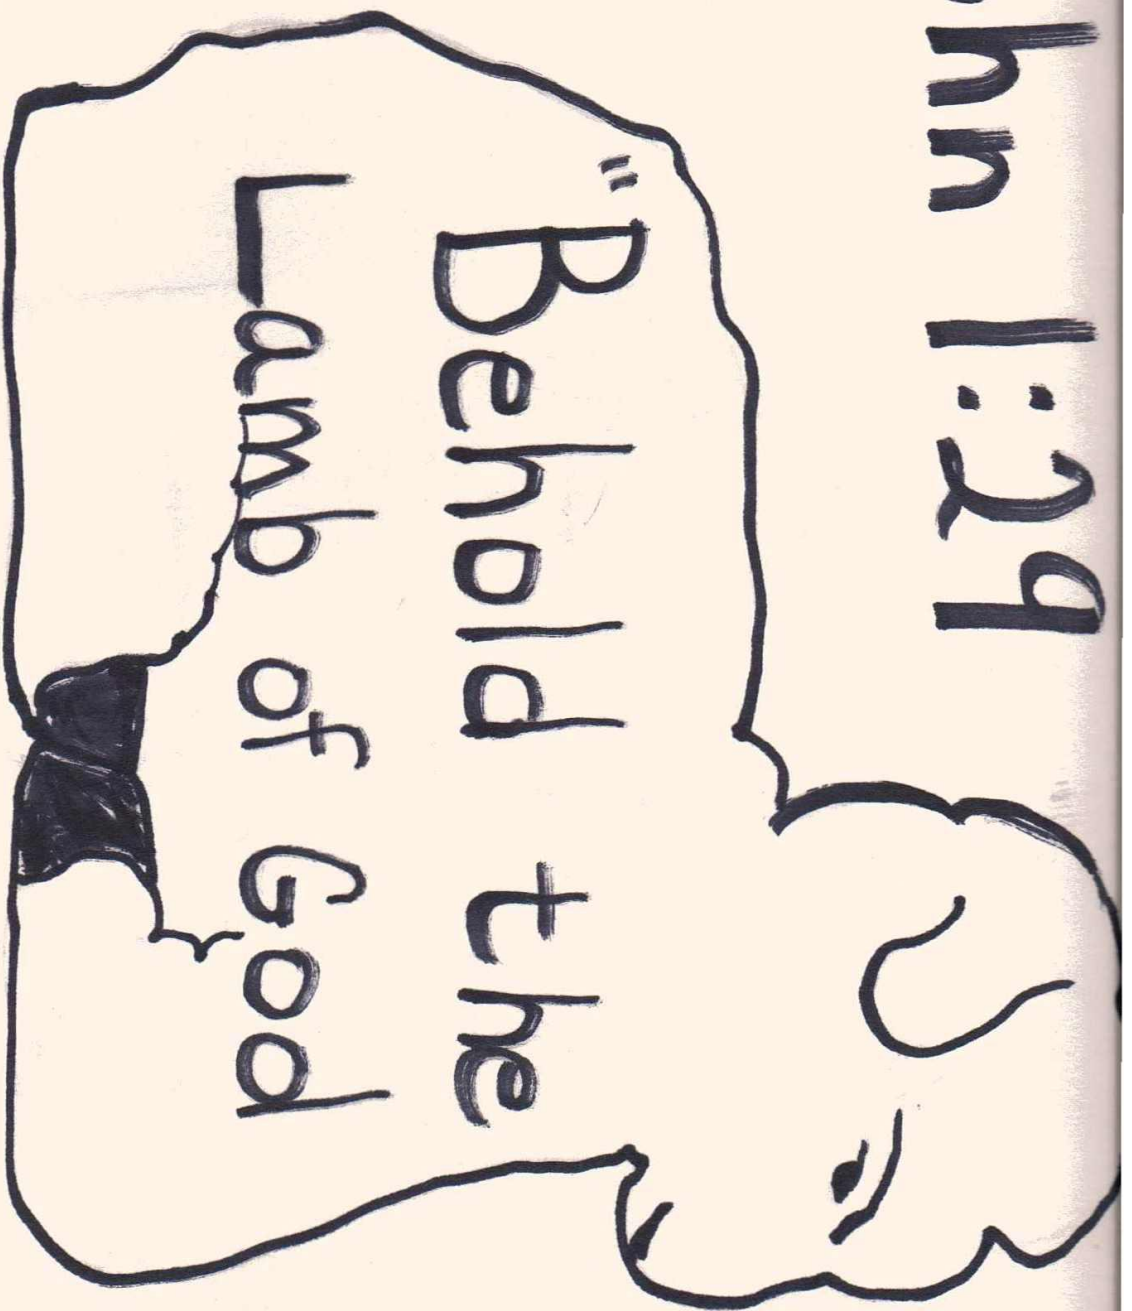 hn 1:29
"Behold the
Lamb of God